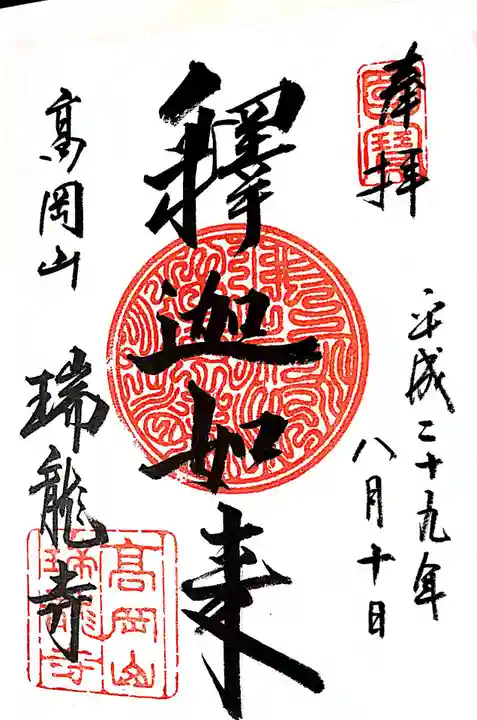 奉拝
国宝
平成二十九年
八月十日
釋迦如来
高岡山
瑞龍寺
高岡山
瑞龍寺